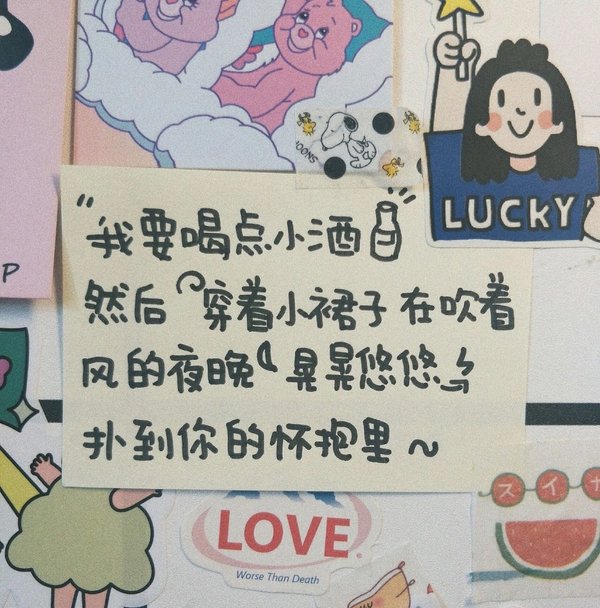 LUCKY
SNOO
P
"我要喝点小酒
然后 穿着小裙子 在吹着
风的夜晚 晃晃悠悠
扑到你的怀抱里~
LOVE
Worse Than Death
スイカ